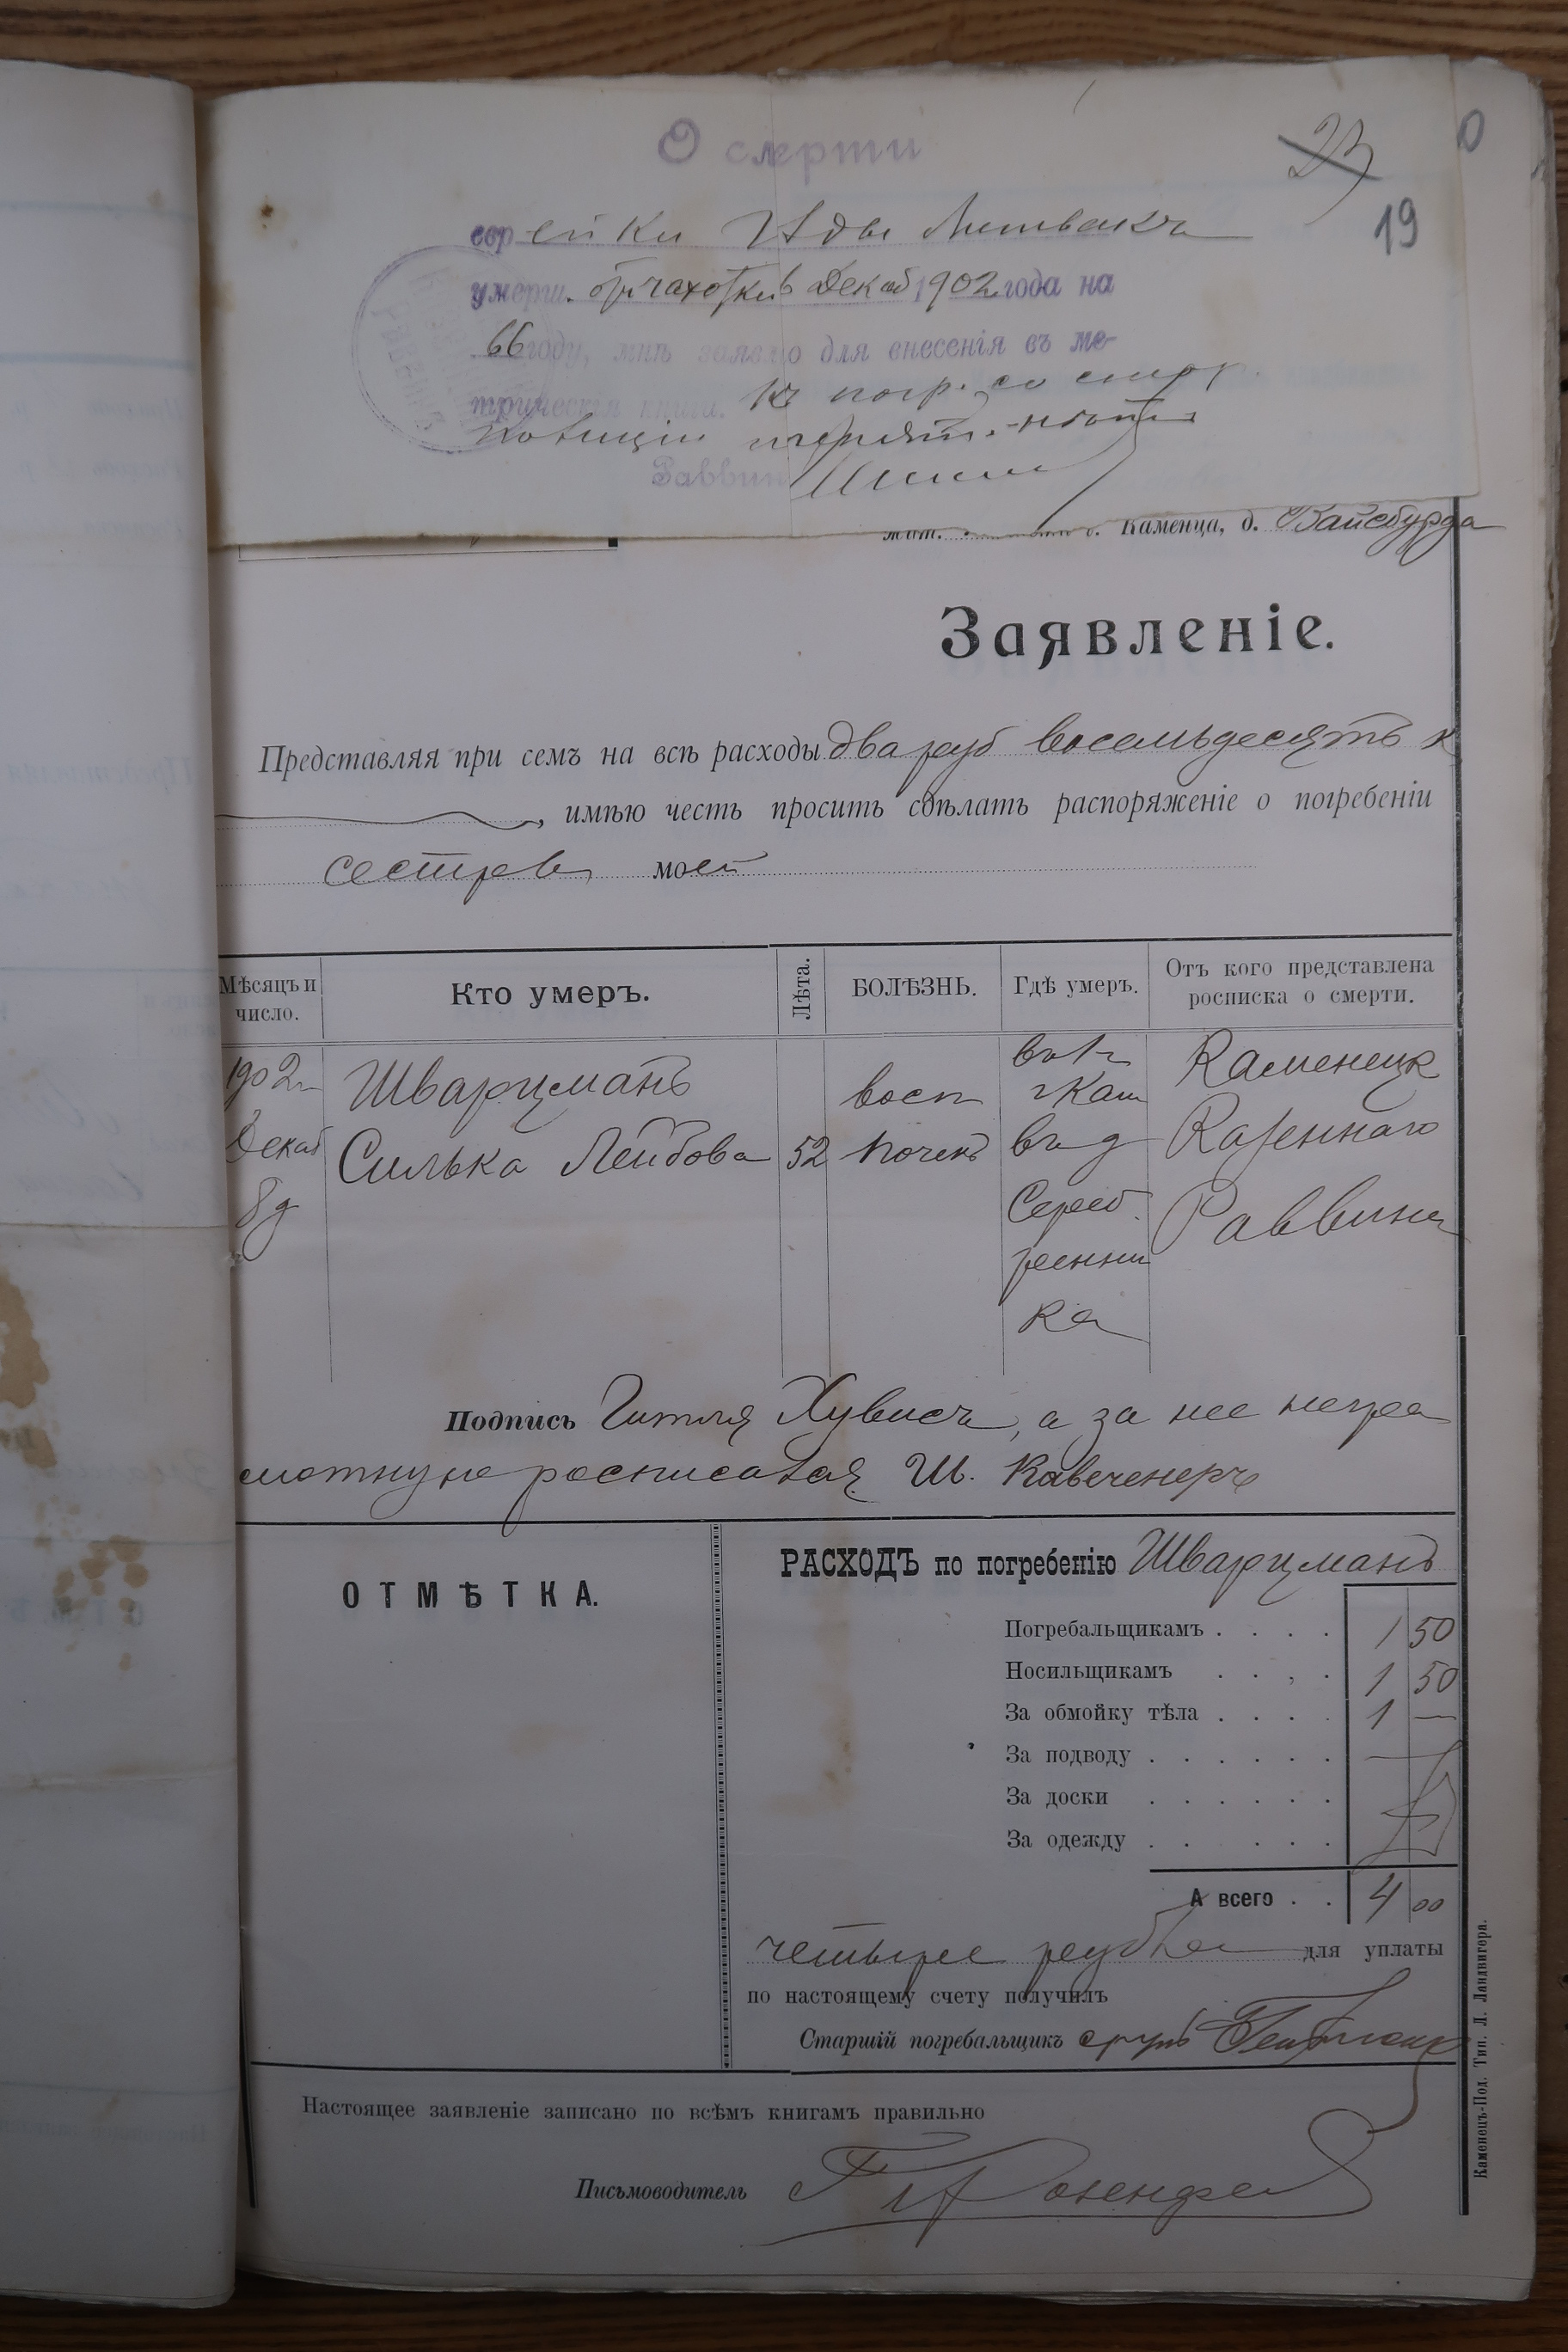 О смерти
23
19
еврейки Иды Литвакъ
умерш. отъ чахотки 6 Декаб 1902 года на
66 году, мнѣ заявлено для внесенія въ ме-
трическія книги. Къ погр. со стор.
полиціи препят. нѣтъ
Раввинъ
жит. г. Каменца, д. Вайсбурда
Заявленіе.
Представляя при семъ на всѣ расходы два руб восемьдесятъ к
, имѣю честь просить сдѣлать распоряженіе о погребеніи
сестры моей
Мѣсяцъ и число.
Кто умеръ.
Лѣта.
БОЛѢЗНЬ.
Гдѣ умеръ.
Отъ кого представлена росписка о смерти.
1902 г
Декаб
8 д
Шварцманъ
Силька Лейбова
52
восп
почекъ
г Кам
въ д
Сереб
ренни
ка
Каменецк
Казеннаго
Раввина
Подпись Гитля Хувисъ, а за нее негра
мотную росписался Ш. Кавеченеръ
ОТМѢТКА.
РАСХОДЪ по погребенію Шварцманъ
Погребальщикамъ . . . . 1 50
Носильщикамъ . . . . 1 50
За обмойку тѣла . . . . 1 —
За подводу . . . . . .
За доски . . . . . .
За одежду . . . . . .
А всего . . 4 00
четыре рубля для уплаты
по настоящему счету получилъ
Старшій погребальщикъ
Настоящее заявленіе записано по всѣмъ книгамъ правильно
Письмоводитель Розенфел
Каменецъ-Под. Тип. Л. Ландвигера.